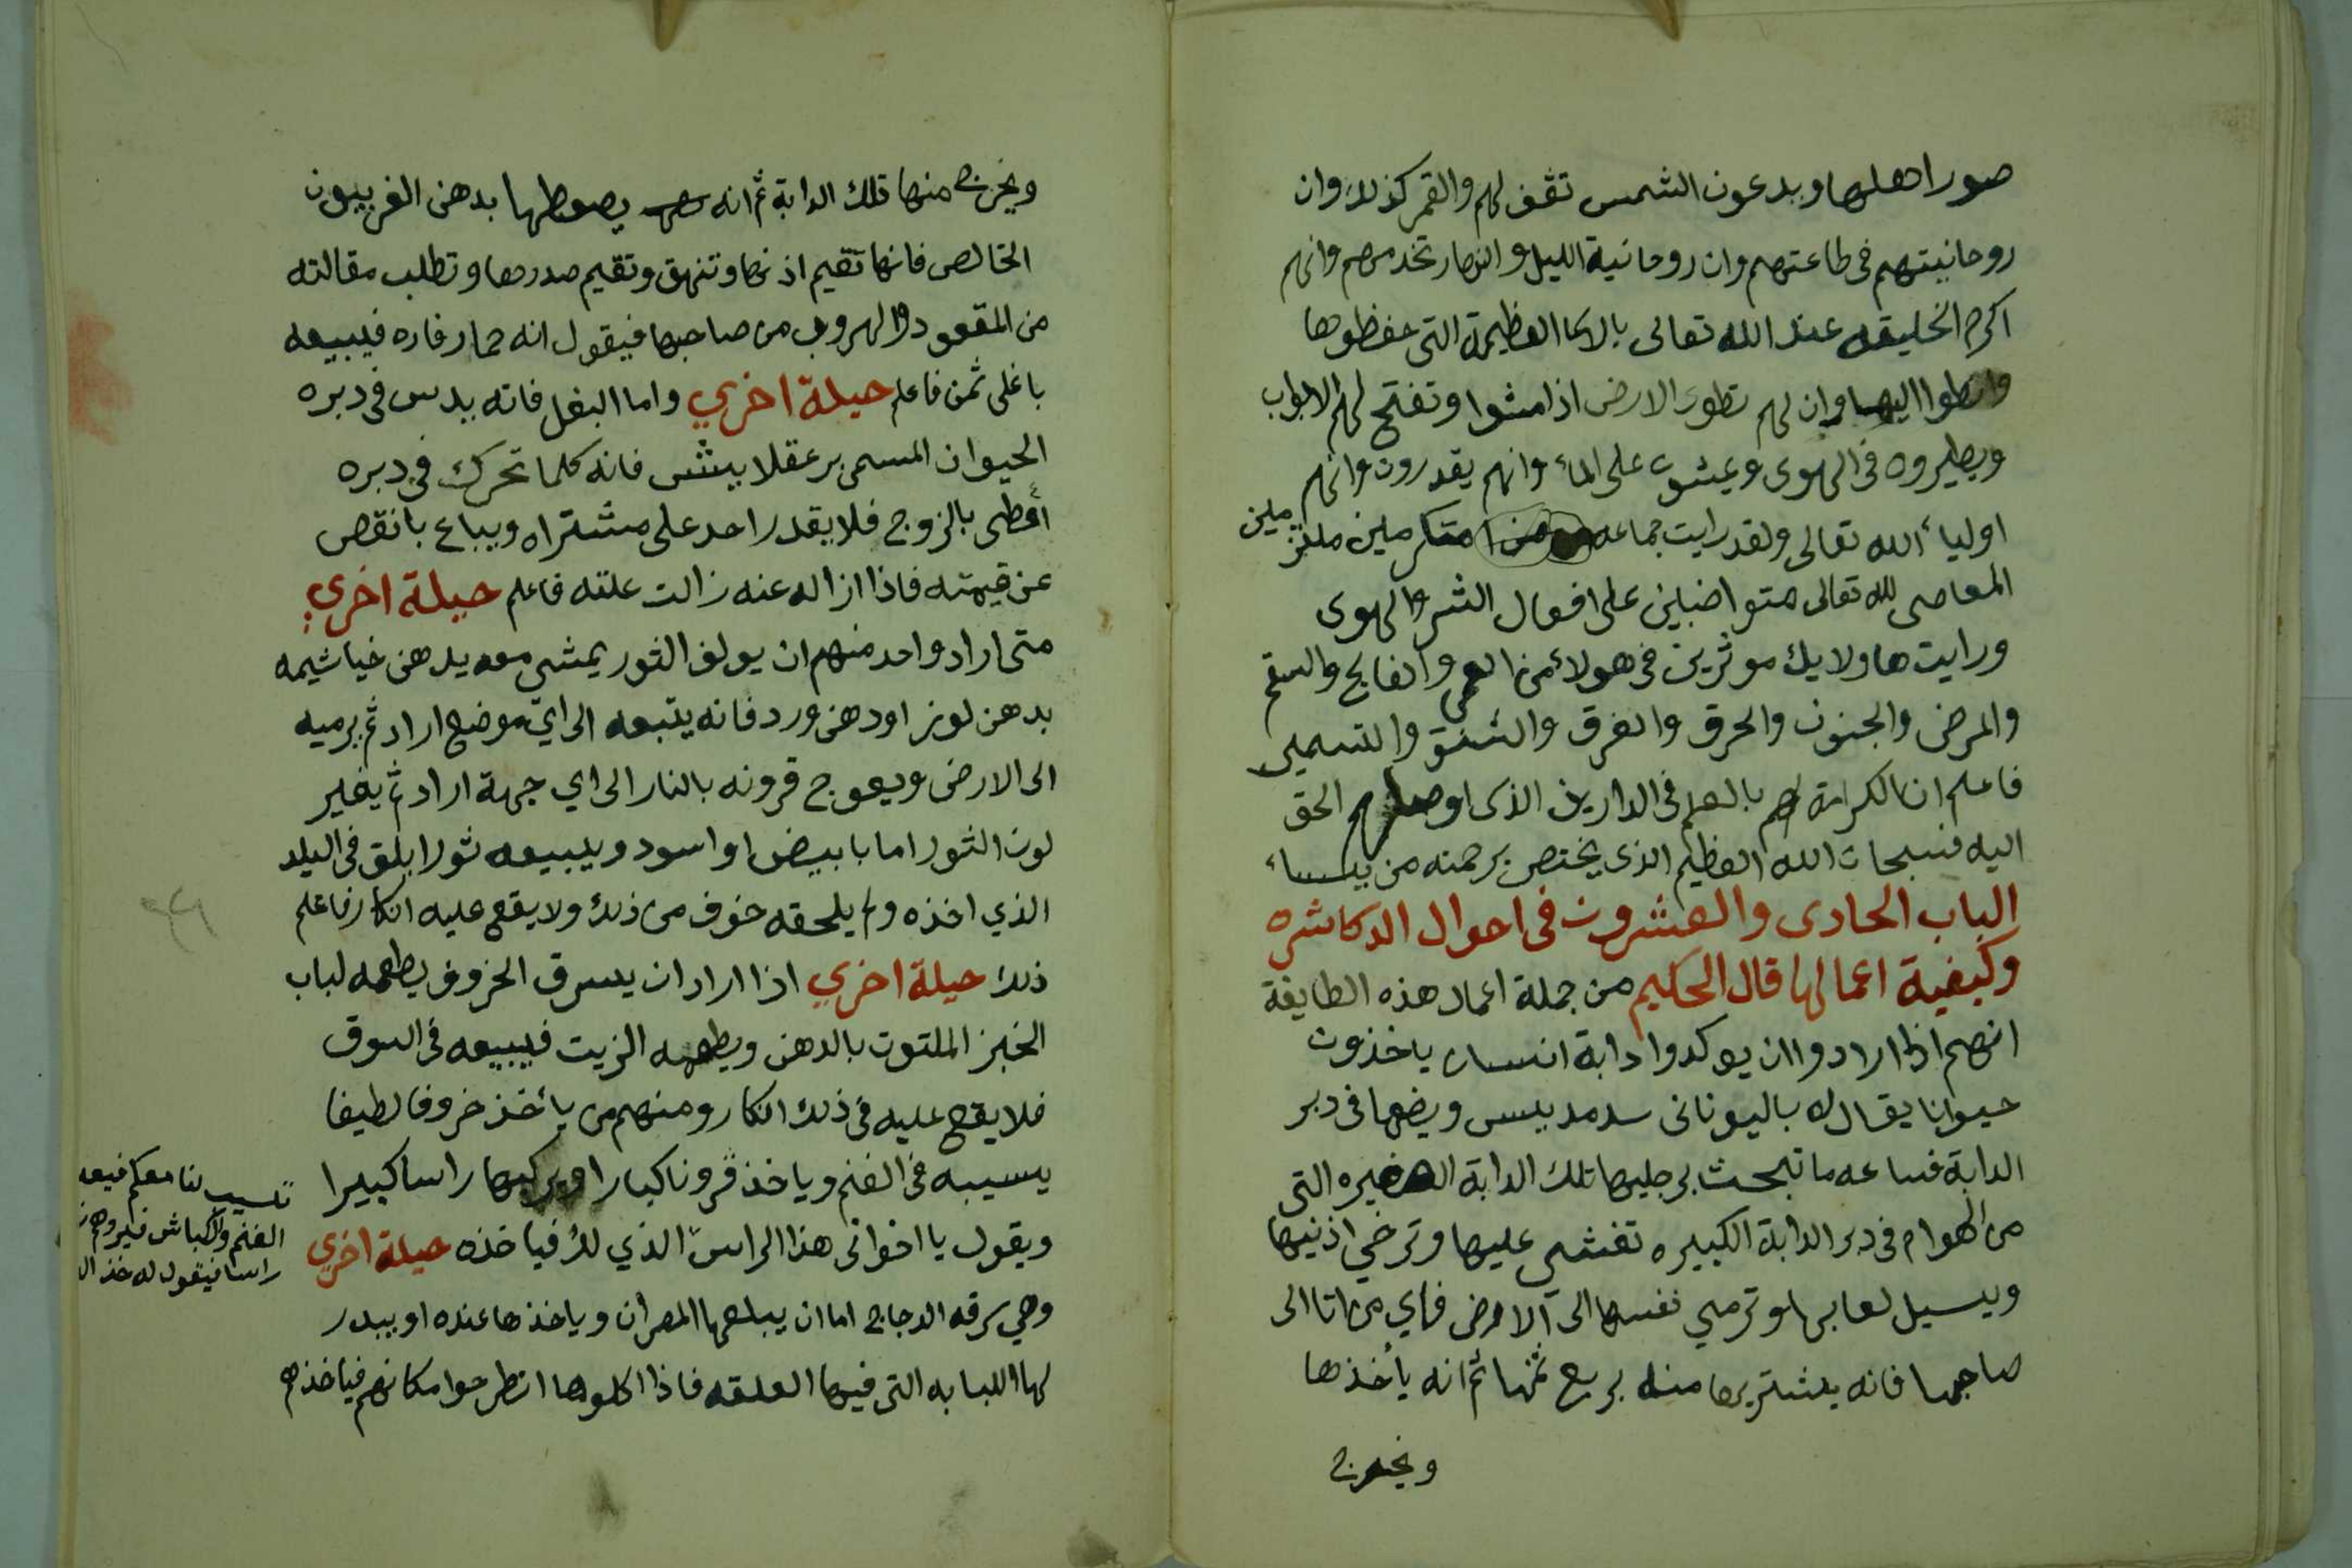 صور اهلها ويدعون الشمس تقف لهم والقمر كذلك وان
روحانيتهم فى طاعتهم وان روحانية الليل والنهار تخدمهم وانهم
اكرم الخليقه عند الله تعالى بالاسما العظيمة التى حفظوها
وان لهم تطوى الارض اذا مشوا وتفتح لهم الابواب
ويطيروه فى الهوى ويمشوا على الماء وانهم يقدرون وانهم
اولياء الله تعالى ولقد رايت جماعه متكرملين
المعاصى لله تعالى متواضبين على افعال الشر والهوى
ورايت هاولايك موثرين فى هولاء من العمى والفالج والسقم
والمرض والجنون والحرق والغرق والشنق والتسمير
فاعلم ان الكرامة لهم بالعلم فى الدارين الذى اوصلهم الحق
اليه فسبحان الله العظيم الذى يختص برحمته من يشاء
الباب الحادى والعشرون فى احوال الدكاشره
وكيفية اعمالها قال الحكيم من جملة اعمال هذه الطايفة
انهم اذا ارادوا ان يوكدوا دابة انسان ياخذون
حيوانا يقال له باليونانى سدمد بيس ويضعها فى دبر
الدابة فساعه ما تبحث برجليها تلك الدابة الصغيره التى
من الهوام فى دبر الدابة الكبيره تغشى عليها وترخي اذنيها
ويسيل لعابها وترمي نفسها الى الارض فاي من اتا الى
صاحبها فانه يشتريها منه بربع ثمنها ثم انه يأخذها
ويخرج
ويخرج منها تلك الدابة ثم انه يصعطها بدهن الفربيون
الخالص فانها تقيم اذنها وتنهق وتقيم صدرها وتطلب مقالته
من القعود والهروب من صاحبها فيقول انه حمار فاره فيبيعه
باغلى ثمن فاعلم حيلة اخري واما البغل فانه يدس فى دبره
الحيوان المسمى برعقلا بيش فانه كلما تحرك فى دبره
بالزوج فلا يقدر احد على مشتراه ويباع بانقص
عن قيمته فاذا ازاله عنه زالت علته فاعلم حيلة اخري
متى اراد واحد منهم ان يولف الثور يمشى معه يدهن خياشيمه
بدهن لوز او دهن ورد فانه يتبعه الى اي موضع اراد ثم يرميه
الى الارض ويعوج قرونه بالنار الى اي جهة اراد ثم يغير
لون الثور اما بابيض او اسود ويبيعه ثورا ابلق فى البلد
الذي اخذه ولم يلحقه خوف من ذلك ولا يقع عليه انكار فاعلم
ذلك حيلة اخري اذا اراد ان يسرق الخروف يطعمه لباب
الخبز الملتوت بالدهن ويطعمه الزيت فيبيعه فى السوق
فلا يقع عليه فى ذلك انكار ومنهم من يأخذ خروفا لطيفا
يسيبه فى الغنم وياخذ قرونا كبارا ويركبها راسا كبيرا
ويقول يا اخوانى هذا الراس الذي لك فياخذه حيلة اخري
وهي سرقه الدجاج اما ان يبلعها المصران وياخذها عنده او يبدر
لها اللبابه التى فيها العلقه فاذا اكلوها انطرحوا مكانهم فياخذهم
لنا معكم فيعه
الغنم والكباش
راسا فيقول له خذ